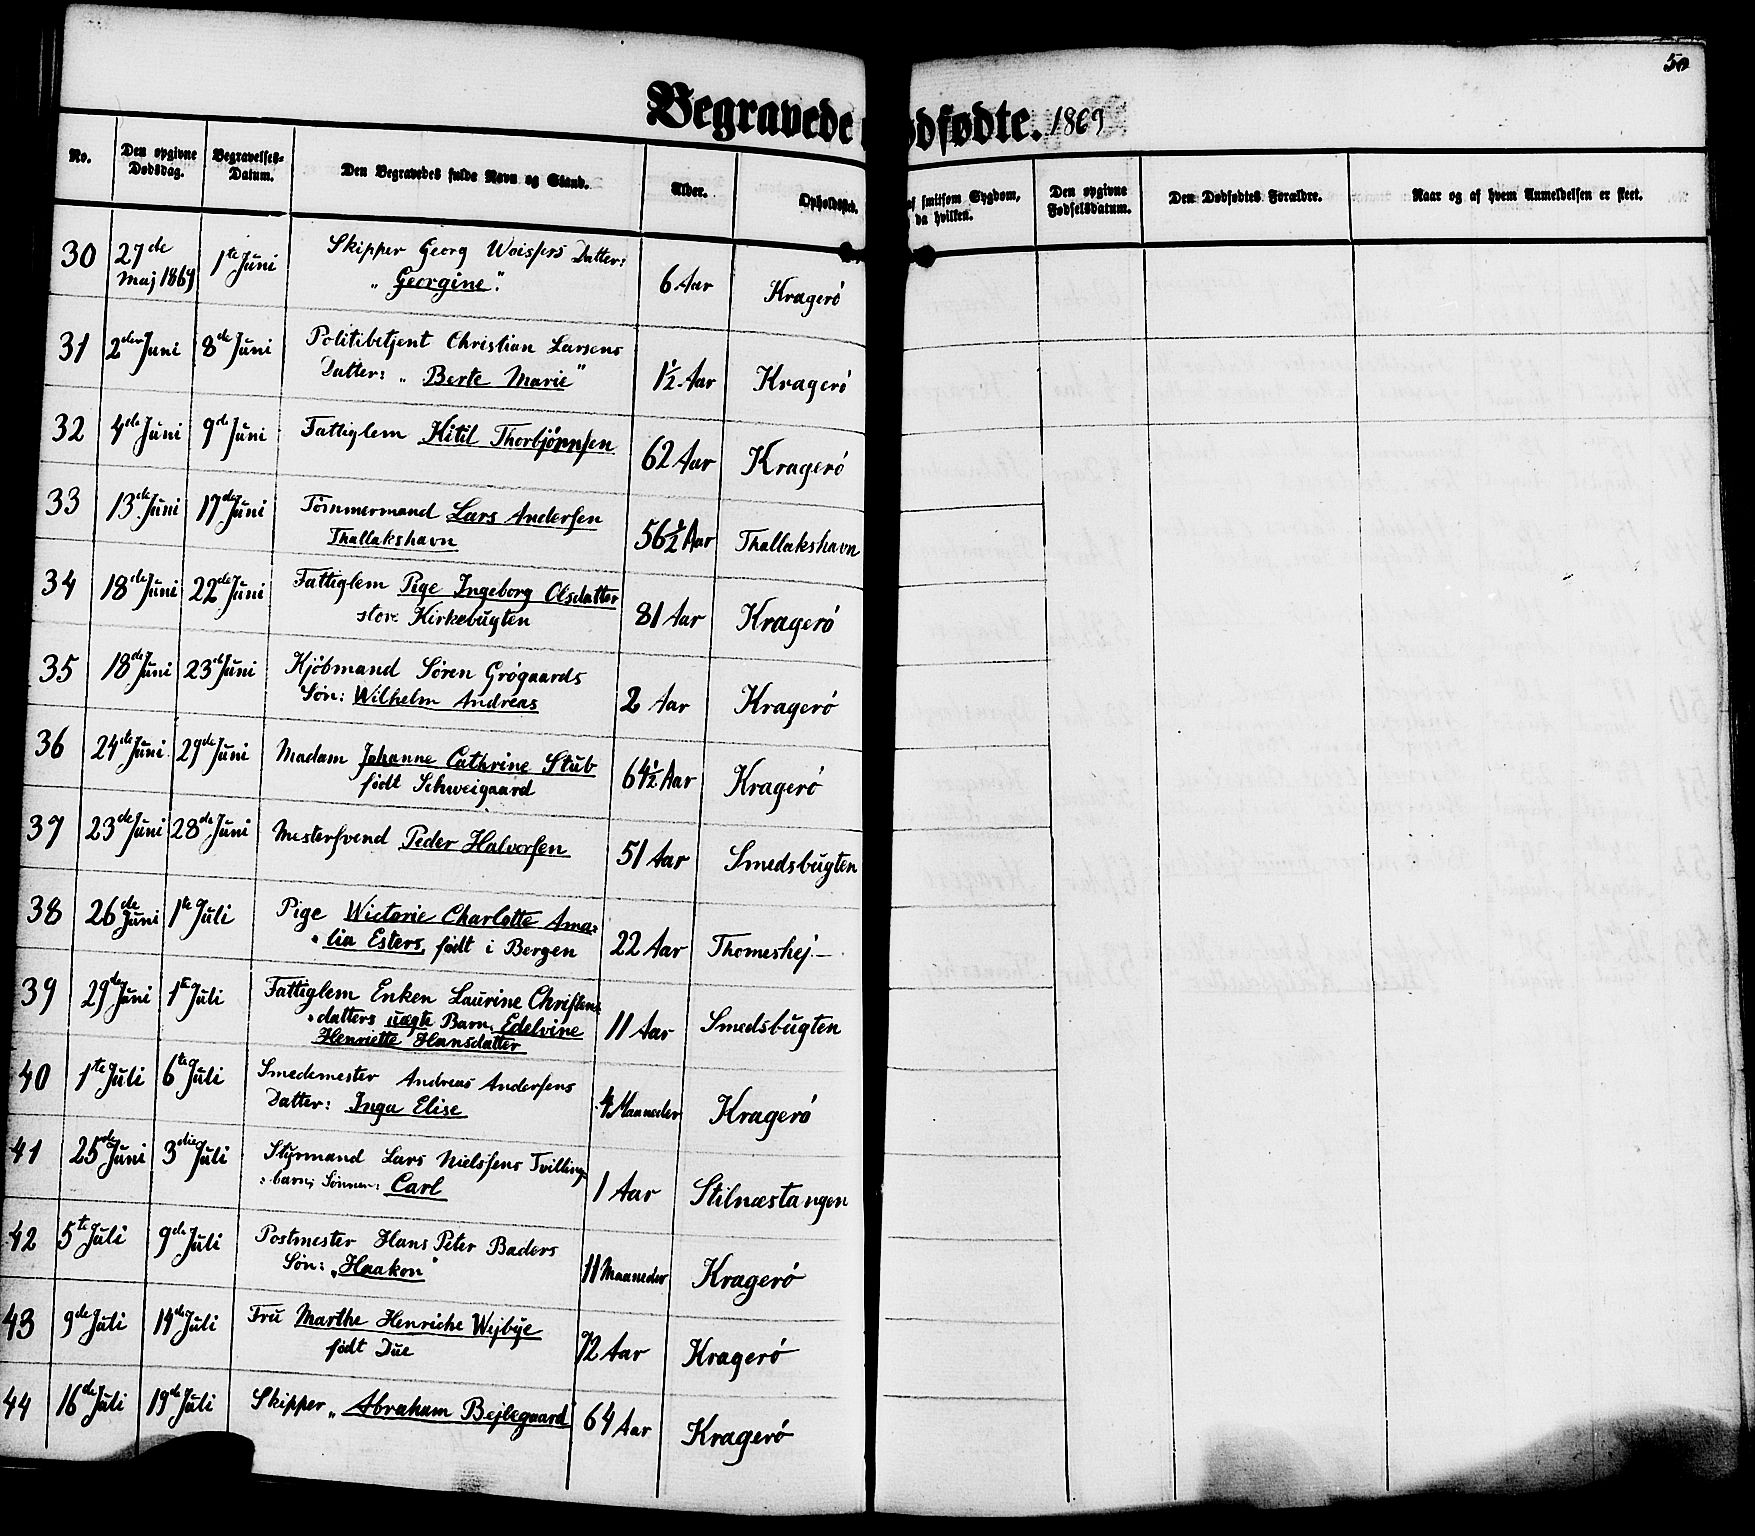 50
Begravede ødfødte. 1869
No. Den opgivne Dødsdag. Begravelses-Datum. Den Begravedes fulde Navn og Stand. Alder. Opholdssted. af smitsom Sygdom, da hvilken. Den opgivne Fødselsdatum. Den Dødfødtes Forældre. Naar og af hvem Anmeldelsen er skeet.
30 27de Maj 1869 1ste Juni Skipper Georg Woisfers Datter:
„Georgine". 6 Aar Kragerö
31 2den Juni 8de Juni Politibetjent Christian Larsens
Datter: „Berte Marie" 1½ Aar Kragerö
32 4de Juni 9de Juni Fattiglem Kitil Thorbjörnsen 62 Aar Kragerö
33 13de Juni 17de Juni Tömmermand Lars Andersen
Thallakshavn 56½ Aar Thallakshavn
34 18de Juni 22de Juni Fattiglem Pige Ingeborg Olsdatter
store Kirkebugten 81 Aar Kragerö
35 18de Juni 23de Juni Kjöbmand Sören Grögaards
Sön: Wilhelm Andreas 2 Aar Kragerö
36 24de Juni 29de Juni Madam Johanne Cathrine Stub
født Schweigaard 64½ Aar Kragerö
37 23de Juni 28de Juni Mestersvend Peder Halvorsen 51 Aar Smedsbugten
38 26de Juni 1ste Juli Pige Wictorie Charlotte Ama-
lia Esters, født i Bergen 22 Aar Thomeshej
39 29de Juni 1ste Juli Fattiglem Enken Laurine Christens-
datters uægte Barn, Edelvine
Henriette Hansdatter 11 Aar Smedsbugten
40 1ste Juli 6te Juli Smedemester Andreas Andersens
Datter: Inga Elise 4 Maaneder Kragerö
41 25de Juni 3die Juli Styrmand Lars Nielssens Tvilling-
barn, Sönnen: Carl 1 Aar Stilnæstangen
42 5te Juli 9de Juli Postmester Hans Peter Baders
Sön: „Haakon" 11 Maaneder Kragerö
43 9de Juli 14de Juli Fru Marthe Henriche Wejbye
født Due 72 Aar Kragerö
44 16de Juli 19de Juli Skipper „Abraham Bejlegaard" 64 Aar Kragerö